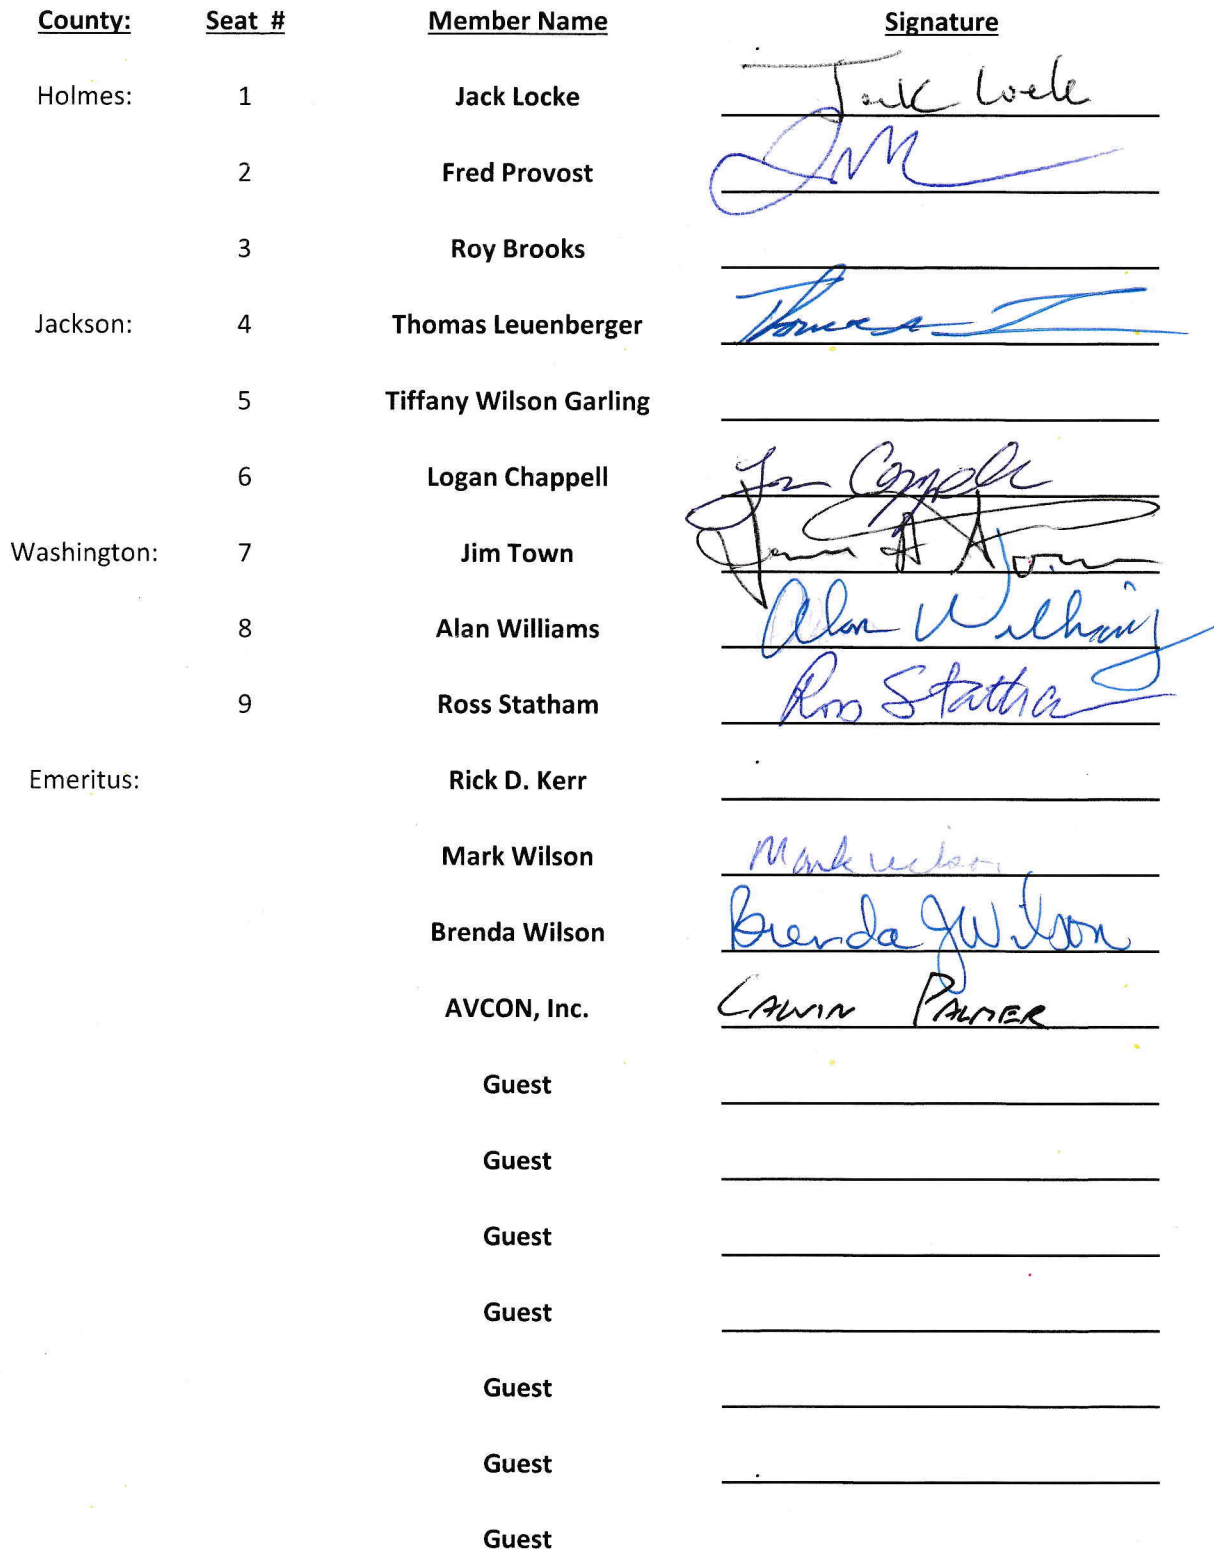 County: Seat # Member Name Signature
Holmes: 1 Jack Locke Jack Locke
2 Fred Provost
3 Roy Brooks
Jackson: 4 Thomas Leuenberger Thomas
5 Tiffany Wilson Garling
6 Logan Chappell
Washington: 7 Jim Town James A Town
8 Alan Williams Alan Williams
9 Ross Statham Ross Statham
Emeritus: Rick D. Kerr
Mark Wilson Mark Wilson
Brenda Wilson Brenda J Wilson
AVCON, Inc. CALVIN PALMER
Guest
Guest
Guest
Guest
Guest
Guest
Guest